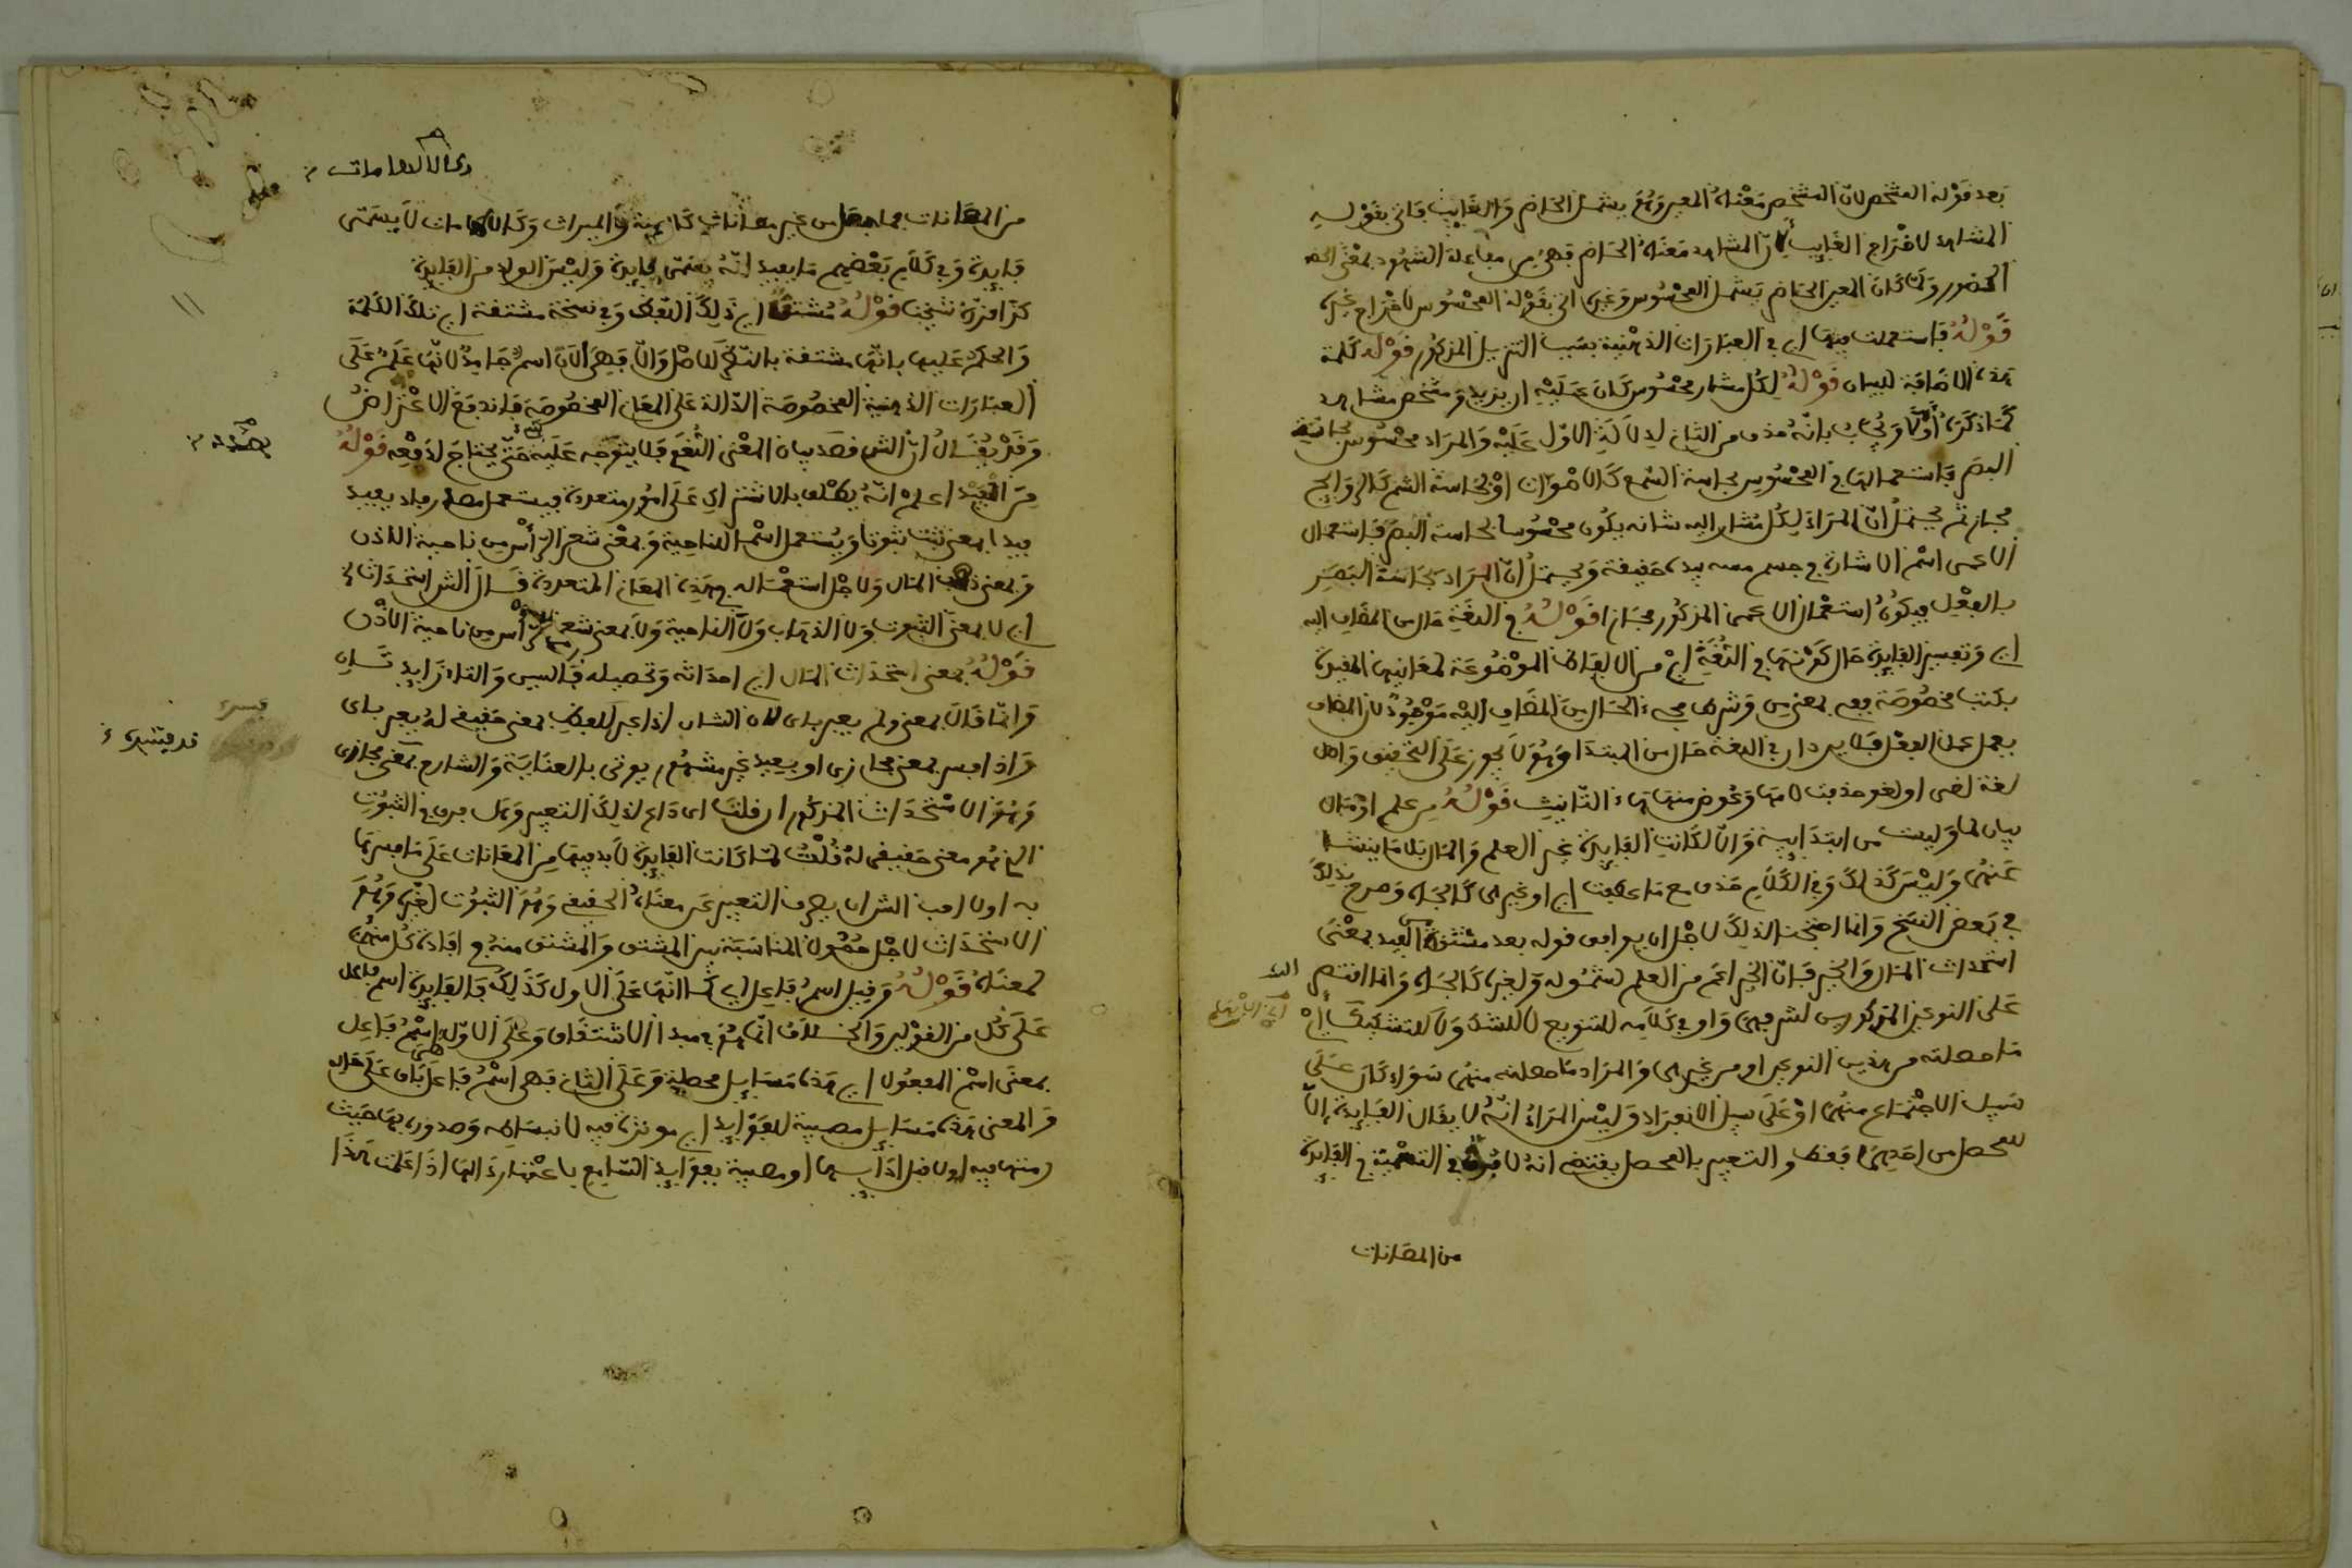 بعد قوله المشخص لان المشخص معناه المعين وهو يشمل الحاضر والغايب فاتى بقوله
المشاهد لاخراج الغايب لان المشاهد معناه الحاضر فهى من مفاعلة الشهود بمعنى الحضـ
الحضور ولما كان المعين الحاضر يشمل المحسوس وغيره اتى بقوله المحسوس لاخراج غيره
قوله فاستعملت فيها اى فى العبارات الذهنية بسبب التنزيل المذكور قوله كلمة
هذه الاضافة للبيان قوله لكل مشار محسوس كان عليه ان يزيد ومشخص مشاهد
كما ذكره أولا ويجاب بانه حذف من الثانى لدلالة الاول عليه والمراد محسوس بحاسة
البصر فاستعمالها فى المحسوس بحاسة السمع كالاصوات او بحاسة الشم كالروايح
مجاز ثم يحتمل ان المراد لكل مشار اليه شانه يكون محسوسا بحاسة البصر فاستعمال
الاعمى اسم الاشارة فى جسم مسه بيده حقيقة ويحتمل ان المراد بحاسة البصر
بالفعل فيكون استعمال الاعمى المذكور مجازا قوله فى اللغة حال من المضاف اليه
اى وتفسير الفايدة حال كونها فى اللغة اى من الالفاظ الموضوعة لمعانيها المفيدة
بكتب مخصوصة ففى بمعنى من وشرط مجىء الحال من المضاف اليه موجود لان المضاف
يعمل عمل الفعل فلا يرد ان فى اللغة حال من المبتدا وهو لا يجوز على التحقيق واصل
لغة لغى او لغو حذفت لامها وعوض منها هاء التانيث قوله من علم او مال
بيان لما وليست من ابتدايية والا لكانت الفايدة غير العلم والمال بل ما ينشا
عنهما وليس كذلك وفى الكلام حذف مع ما عطفت اى او غيرهما كالجاه وصرح بذلك
فى بعض النسخ وانما احتجنا لذلك لاجل ان يوافق قوله بعد مشتقة من الفيد بمعنى
استحداث المال والخير فان الخير اعم من العلم لشموله ولغيره كالجاه وانما اقتصر
على النوعين المذكورين لشرفهما واو فى كلامه للتنويع لا للشك ولا للتشكيك اى
ما حصلته من هذين النوعين او من غيرهما والمراد ما حصلته منهما سواء كان على
سبيل الاجتماع منهما او على سبيل الانفراد وليس المراد انه لا يقال الفايدة الا
للمحصل من احدهما فقط والتعبير بالمحصل يقتضى انه لا بد فى التسمية فى الفايدة
من المعانات
من المعانات فما يحصل من غير معانات كالهبة والميراث وكالالهامات لا يسمى
فايدة وفى كلام بعضهم ما يفيد انه يسمى فايدة وليس الولد من الفايدة
كذا قرره شيخنا قوله مشتقة اى ذلك اللفظ وفى نسخة مشتقة اى تلك الكلمة
والحكم عليها بانها مشتقة بالنظر للاصل والا فهى الان اسم جامد لانها علم على
العبارات الذهنية المخصوصة الدالة على المعانى المخصوصة فاندفع الاعتراض
وقد يقال ان الش قصد بيان المعنى اللغوى فلا يتوجه عليه شىء حتى يحتاج لدفعه قوله
من الفيد اعلم انه يطلق بالاشتراك على امور متعددة فيستعمل مصدر فاد يفيد
فيدا بمعنى ثبت ثبوتا ويستعمل اسما للناحية وبمعنى شعر الرأس من ناحية الاذن
وبمعنى ذهاب المال ولاجل استعماله فى هذه المعانى المتعددة قال الش استحداث الخ
اى لا بمعنى الثبوت ولا الذهاب ولا الناحية ولا بمعنى شعر الرأس من ناحية الاذن
قوله بمعنى استحداث المال اى احداثه وتحصيله فالسين والتاء زايدتان
وانما قال بمعنى ولم يعبر باى لان الشان اذا عبر للفظ بمعنى حقيقى له يعبر باى
واذا فسر بمعنى مجازى او بعيد غير مشهور يوتى بالعناية والشارع بمعنى مجازى
وهو الاستحداث المذكور ان قلت اى داع لذلك التعبير وهلا جرى فى الثبوت
الذى هو معنى حقيقى له قلت لما كانت الفايدة لا بد فيها من المعانات على ما فسرها
به اولا احب الش ان يصرف التعبير عن معناه الحقيقى وهو الثبوت لغيره وهو
الاستحداث لاجل حصول المناسبة بين المشتق والمشتق منه فى افادة كل منهما
لمعناه قوله وقيل اسم فاعل اى كما انها على الاول كذلك فالفايدة اسم فاعل
على كل من القولين والخلاف انما هو فى مبدا الاشتقاق وعلى الاول اسم فاعل
بمعنى اسم المفعول اى هذه مسايل محصلة وعلى الثانى فهى اسم فاعل باق على حاله
والمعنى هذه مسايل مصيبة للفوايد اى موثرة فيه لانبساطه وصدوره بها حيث